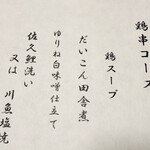 鶏串コース
鶏スープ
だいこん田舎煮
ゆりね白味噌仕立て
佐久鯉洗い
又は 川魚塩焼